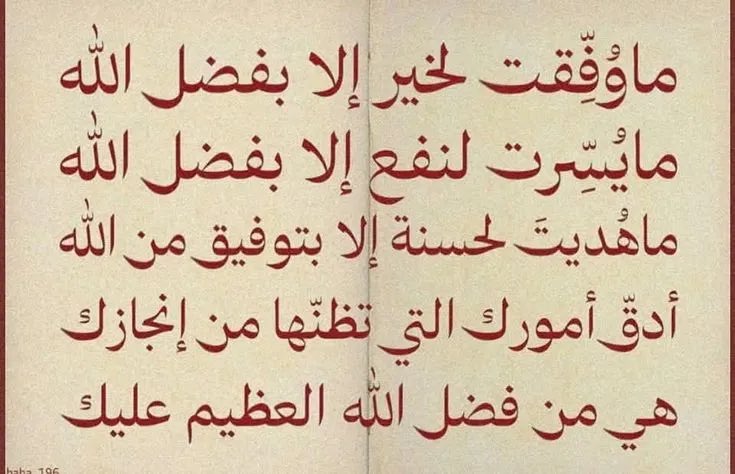 ماوُفِّقت لخير إلا بفضل الله
مايُسِّرت لنفع إلا بفضل الله
ماهُديتَ لحسنة إلا بتوفيق من الله
أدقّ أمورك التي تظنّها من إنجازك
هي من فضل الله العظيم عليك